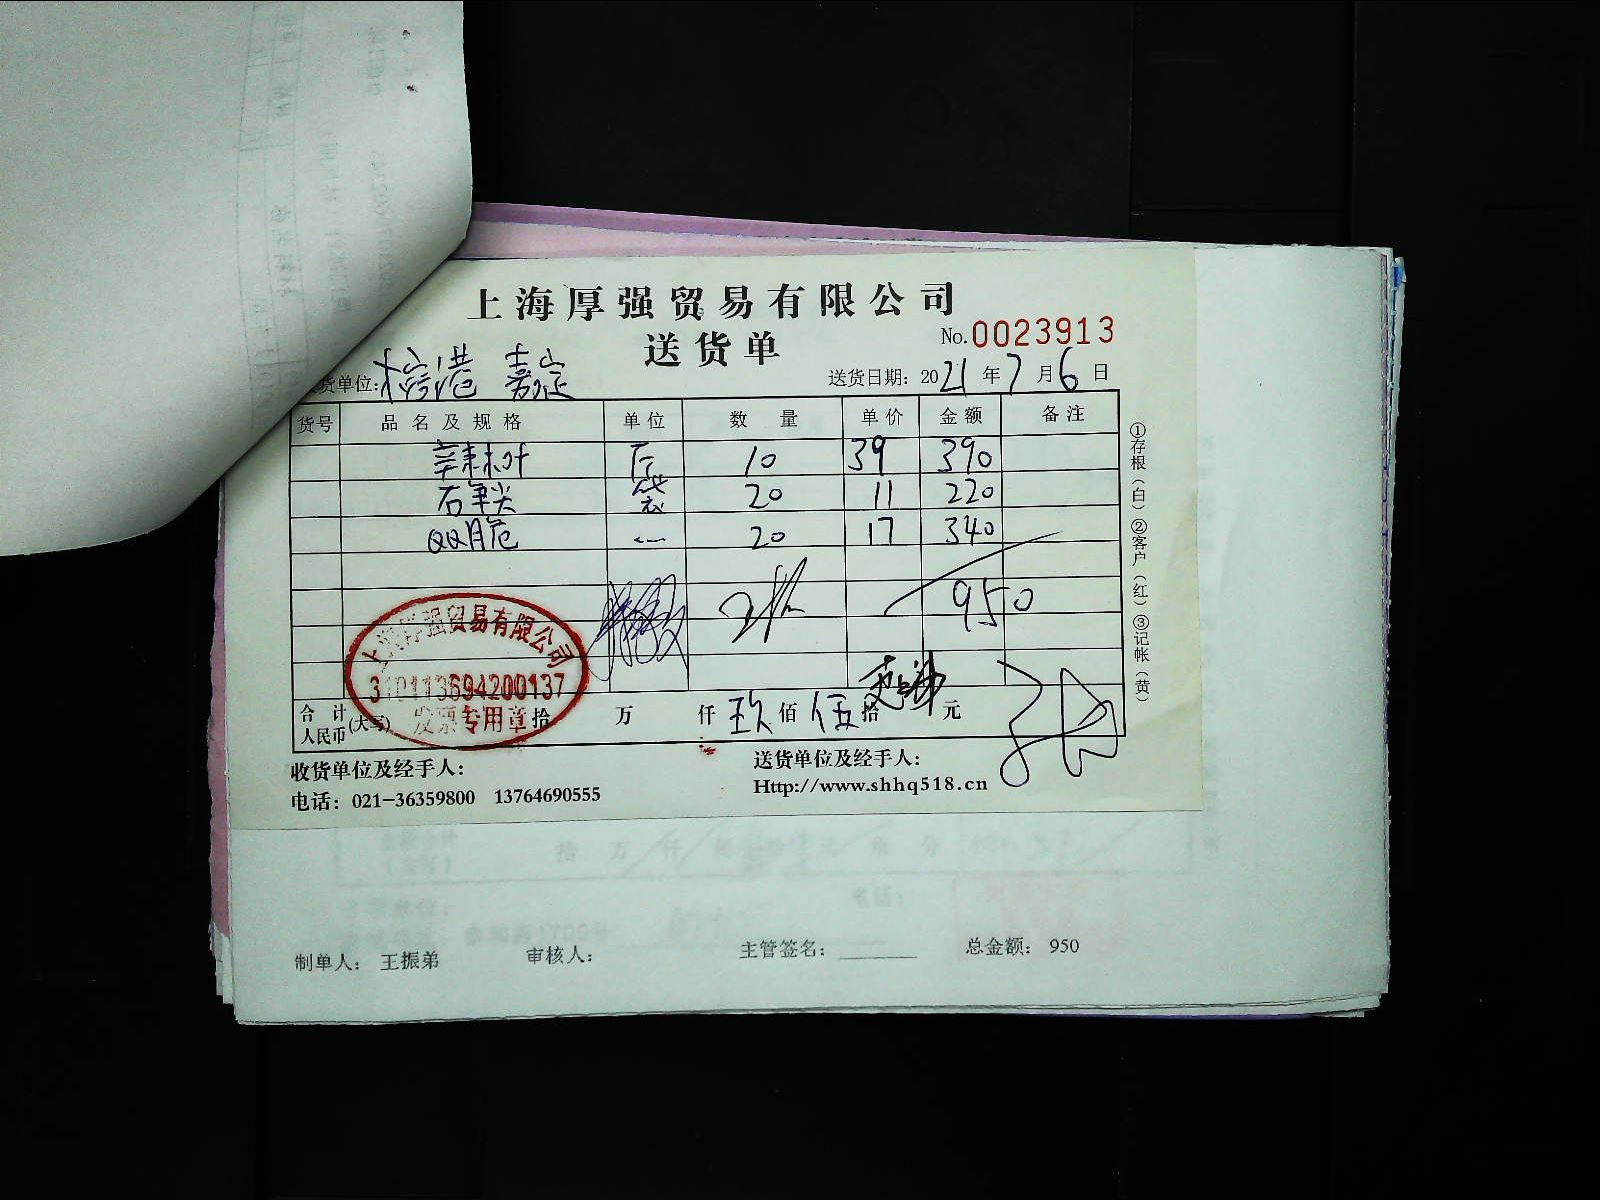 上海厚强贸易有限公司
送货单
No.0023913
货单位: 港 嘉定
送货日期: 2021年7月6日
货号 品名及规格 单位 数量 单价 金额 备注
10 39 390
袋 20 11 220
QQ 20 17 340
950
上海厚强贸易有限公司
310113694200137
发票专用章
合计人民币(大写) 拾 万 仟 玖 佰 伍 拾 元
①存根(白)②客户(红)③记帐(黄)
收货单位及经手人:
送货单位及经手人:
电话: 021-36359800 13764690555
Http://www.shhq518.cn
拾 万 仟 元 分
制单人: 王振弟 审核人: 主管签名: 总金额: 950